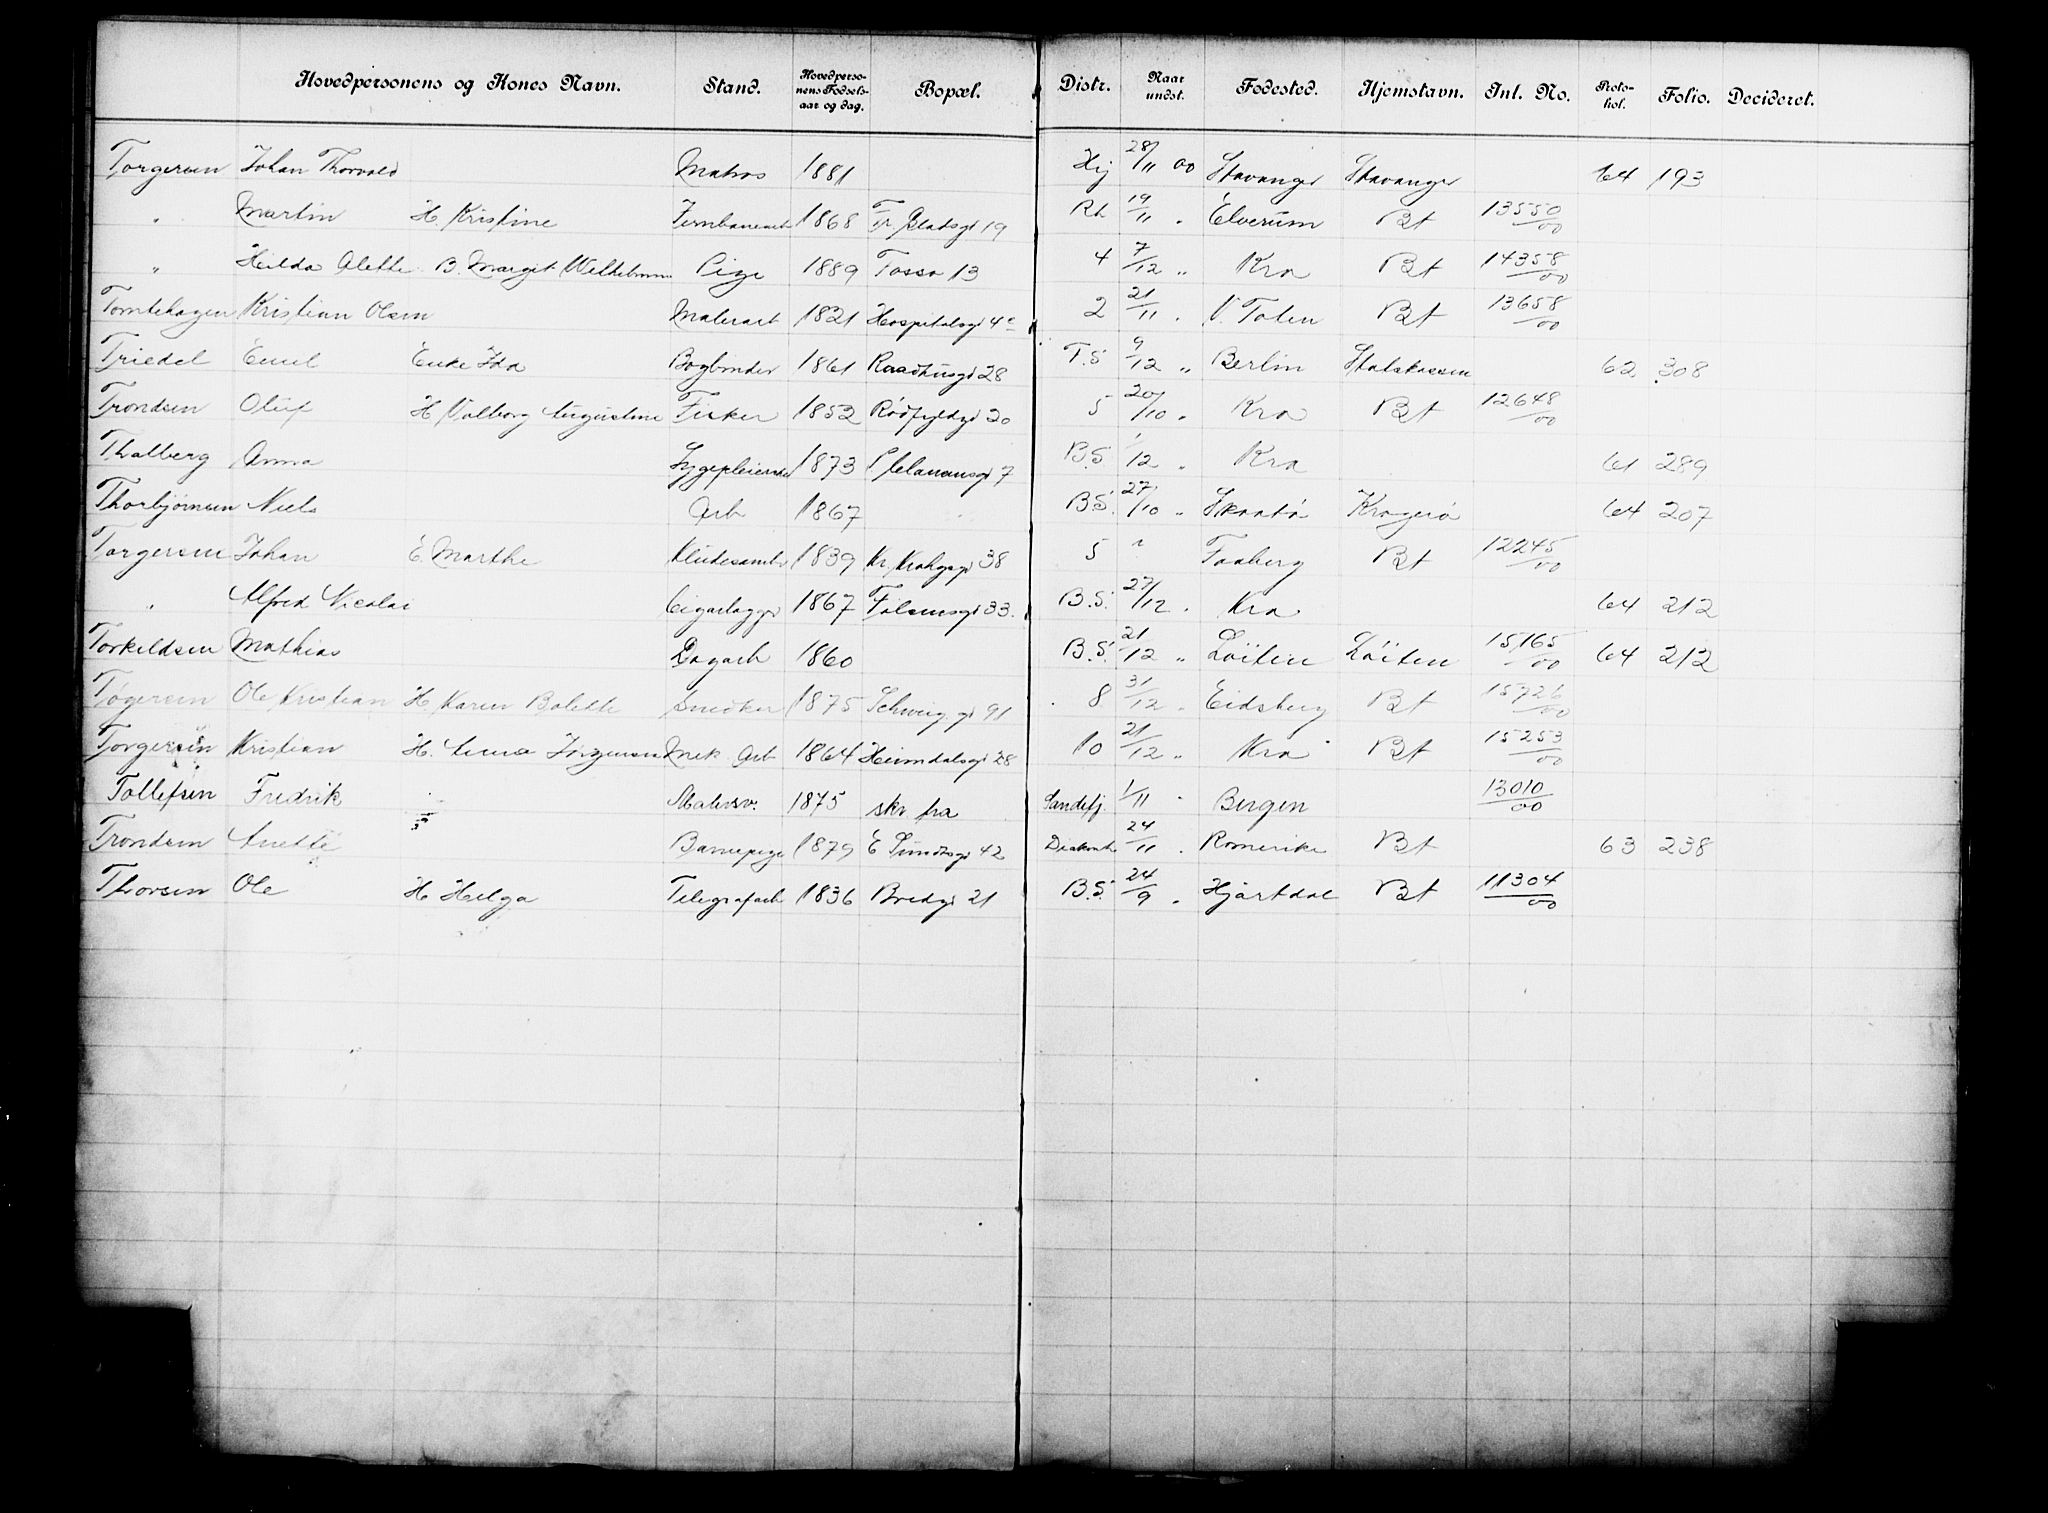 Hovedpersonens og Kones Navn. Stand. Hovedpersonens Fødselsaar og dag. Bopæl. Distr. Naar undst. Fødested. Hjemstavn. Int. No. Protokol. Folio. Decideret.
Torgersen Johan Thorvald Matros 1881 Hj 28/11 00 Stavanger Stavanger 64 193
" Martin H. Kristine Jernbanearb 1868 Tr 19 Rh 19/11 " Elverum Bt 13550/00
" Hilda Alette B. Margit Pige 1889 13 4 7/12 " Kra Bt 14358/00
Tomtehagen Kristian Olsen Malerarb 1821 Hospitalsgd 4 2 21/11 " V. Toten Bt 13658/00
Triedel Emil Enke Ida Bogbinder 1861 Raadhusgd 28 T.S 9/12 " Berlin Statskassen 62 308
Trondsen Oluf H Valborg Augustine Fisker 1852 Rødfyldgd 20 5 20/10 " Kra Bt 12648/00
Thalberg Anna Sygepleierske 1873 7 B.S. 1/12 " Kra 61 289
Thorbjørnsen Niels Arb 1867 B.S. 27/10 " Skaatø Kragerø 64 207
Torgersen Johan E. Marthe Kludesamler 1839 Kr. Kroghsgd 38 5 " Faaberg Bt 12245/00
" Alfred Nicolai 1867 33 B.S. 27/12 " Kra 64 212
Torkildsen Mathias Dagarb 1860 B.S. 21/12 " Løiten Løiten 15165/00 64 212
Tøgersen Ole Kristian H Karen Bolette Snedker 1875 Schweig.gd 91 8 31/12 " Eidsberg Bt 15726/00
Torgersen Kristian H. Anna Jørgensen Mek Arb 1864 Heimdalsgd 28 10 21/12 " Kra Bt 15253/00
Tollefsen Fredrik Malersv. 1875 skr fra Sandefj. 1/11 " Bergen 13010/00
Trondsen Anette Barnepige 1879 E Sundtsgd 42 24/11 " Romerike Bt 63 238
Thorsen Ole H Helga Telegrafarb 1836 Bredgd 21 B.S. 24/9 " Hjartdal Bt 11304/00